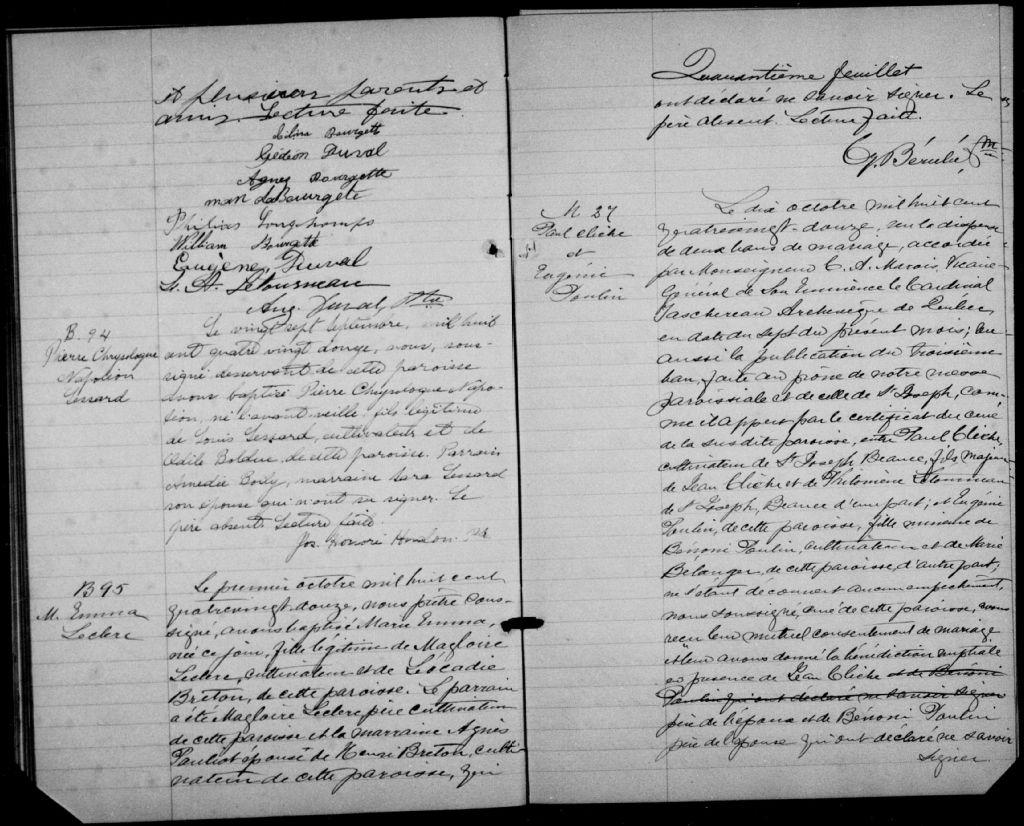 et plusieurs parents et
amis. Lecture faite.
Gédéon Duval
Agnes Bourgette
Philias Longchamps
William Bourgette
Eugène Duval
Aug. Duval, Ptre
B. 94
Pierre Chrysologue
Napoleon
Lessard
Le vingt sept septembre, mil huit
cent quatre vingt douze, nous, sous-
signé desservant de cette paroisse
avons baptisé Pierre Chrysologue Napo-
léon, né l'avant veille, fils légitime
de Louis Lessard, cultivateur et de
Odile Bolduc, de cette paroisse. Parrain
Amédé Boily, marraine Sara Lessard
son épouse qui n'ont su signer. Le
père absent. Lecture faite.
Jos. Honoré
B 95
M. Emma
Leclerc
Le premier octobre mil huit cent
quatrevingt-douze, nous prêtre sous-
signé, avons baptisé Marie Emma,
née ce jour, fille légitime de Magloire
Leclerc, cultivateur et de Léocadie
Breton, de cette paroisse. Le parrain
a été Magloire Leclerc père cultivateur
de cette paroisse et la marraine Agnès
Pouliot épouse de Henri Breton, culti-
vateur de cette paroisse, qui
Quarantième feuillet
ont déclaré ne savoir signer. Le
père absent. Lecture faite.
M 27
Paul Cliche
et
Eugénie
Poulin
Le dix octobre mil huit cent
quatrevingt-douze, vu la dispense
de deux bans de mariage, accordée
par Monseigneur C. A. Marois, Vicaire
Général de Son Eminence le Cardinal
Taschereau Archevêque de Québec,
en date du sept du présent mois; vu
aussi la publication du troisième
ban, faite au prône de notre messe
paroissiale et de celle de St Joseph, com-
me il appert par le certificat du curé
de la susdite paroisse, entre Paul Cliche,
cultivateur de St Joseph Beauce, fils majeur
de Jean Cliche et de Philomène
de St Joseph, Beauce d'une part; et Eugénie
Poulin, de cette paroisse, fille mineure de
Bénoni Poulin, cultivateur et de Marie
Belanger, de cette paroisse, d'autre part;
ne s'étant découvert aucun empêchement,
nous soussigné curé de cette paroisse, avons
reçu leur mutuel consentement de mariage
et leur avons donné la bénédiction nuptiale
en présence de Jean Cliche et de Bénoni
Poulin qui ont déclaré ne savoir signer
père de l'époux et de Bénoni Poulin
père de l'épouse qui ont déclaré ne savoir
signer.